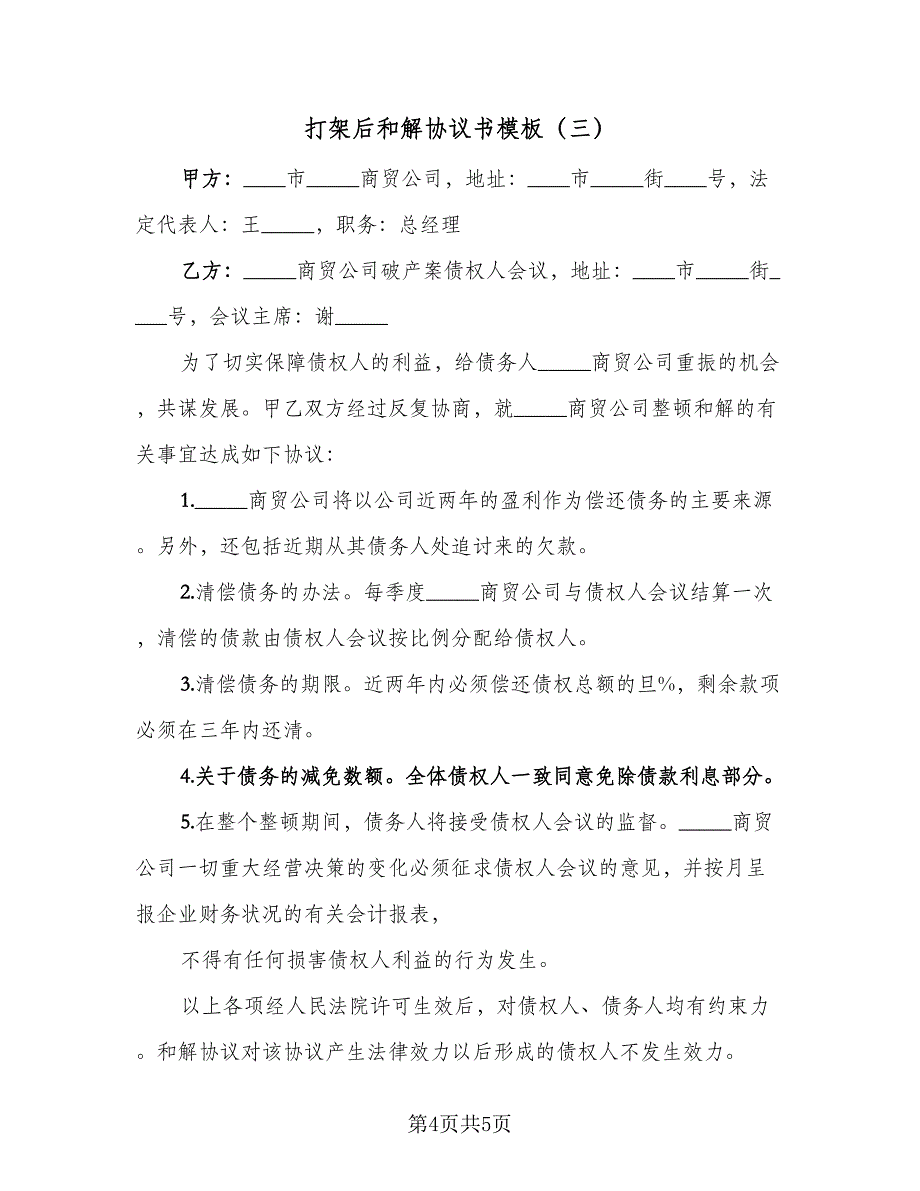 打架后和解协议书模板（三）
甲方：____市_____商贸公司，地址：____市_____街____号，法
定代表人：王_____，职务：总经理
乙方：_____商贸公司破产案债权人会议，地址：____市_____街_
___号，会议主席：谢_____
为了切实保障债权人的利益，给债务人_____商贸公司重振的机会
，共谋发展。甲乙双方经过反复协商，就_____商贸公司整顿和解的有
关事宜达成如下协议：
1._____商贸公司将以公司近两年的盈利作为偿还债务的主要来源
。另外，还包括近期从其债务人处追讨来的欠款。
2.清偿债务的办法。每季度_____商贸公司与债权人会议结算一次
，清偿的债款由债权人会议按比例分配给债权人。
3.清偿债务的期限。近两年内必须偿还债权总额的旦%，剩余款项
必须在三年内还清。
4.关于债务的减免数额。全体债权人一致同意免除债款利息部分。
5.在整个整顿期间，债务人将接受债权人会议的监督。_____商贸
公司一切重大经营决策的变化必须征求债权人会议的意见，并按月呈
报企业财务状况的有关会计报表，
不得有任何损害债权人利益的行为发生。
以上各项经人民法院许可生效后，对债权人、债务人均有约束力
。和解协议对该协议产生法律效力以后形成的债权人不发生效力。
第4页共5页